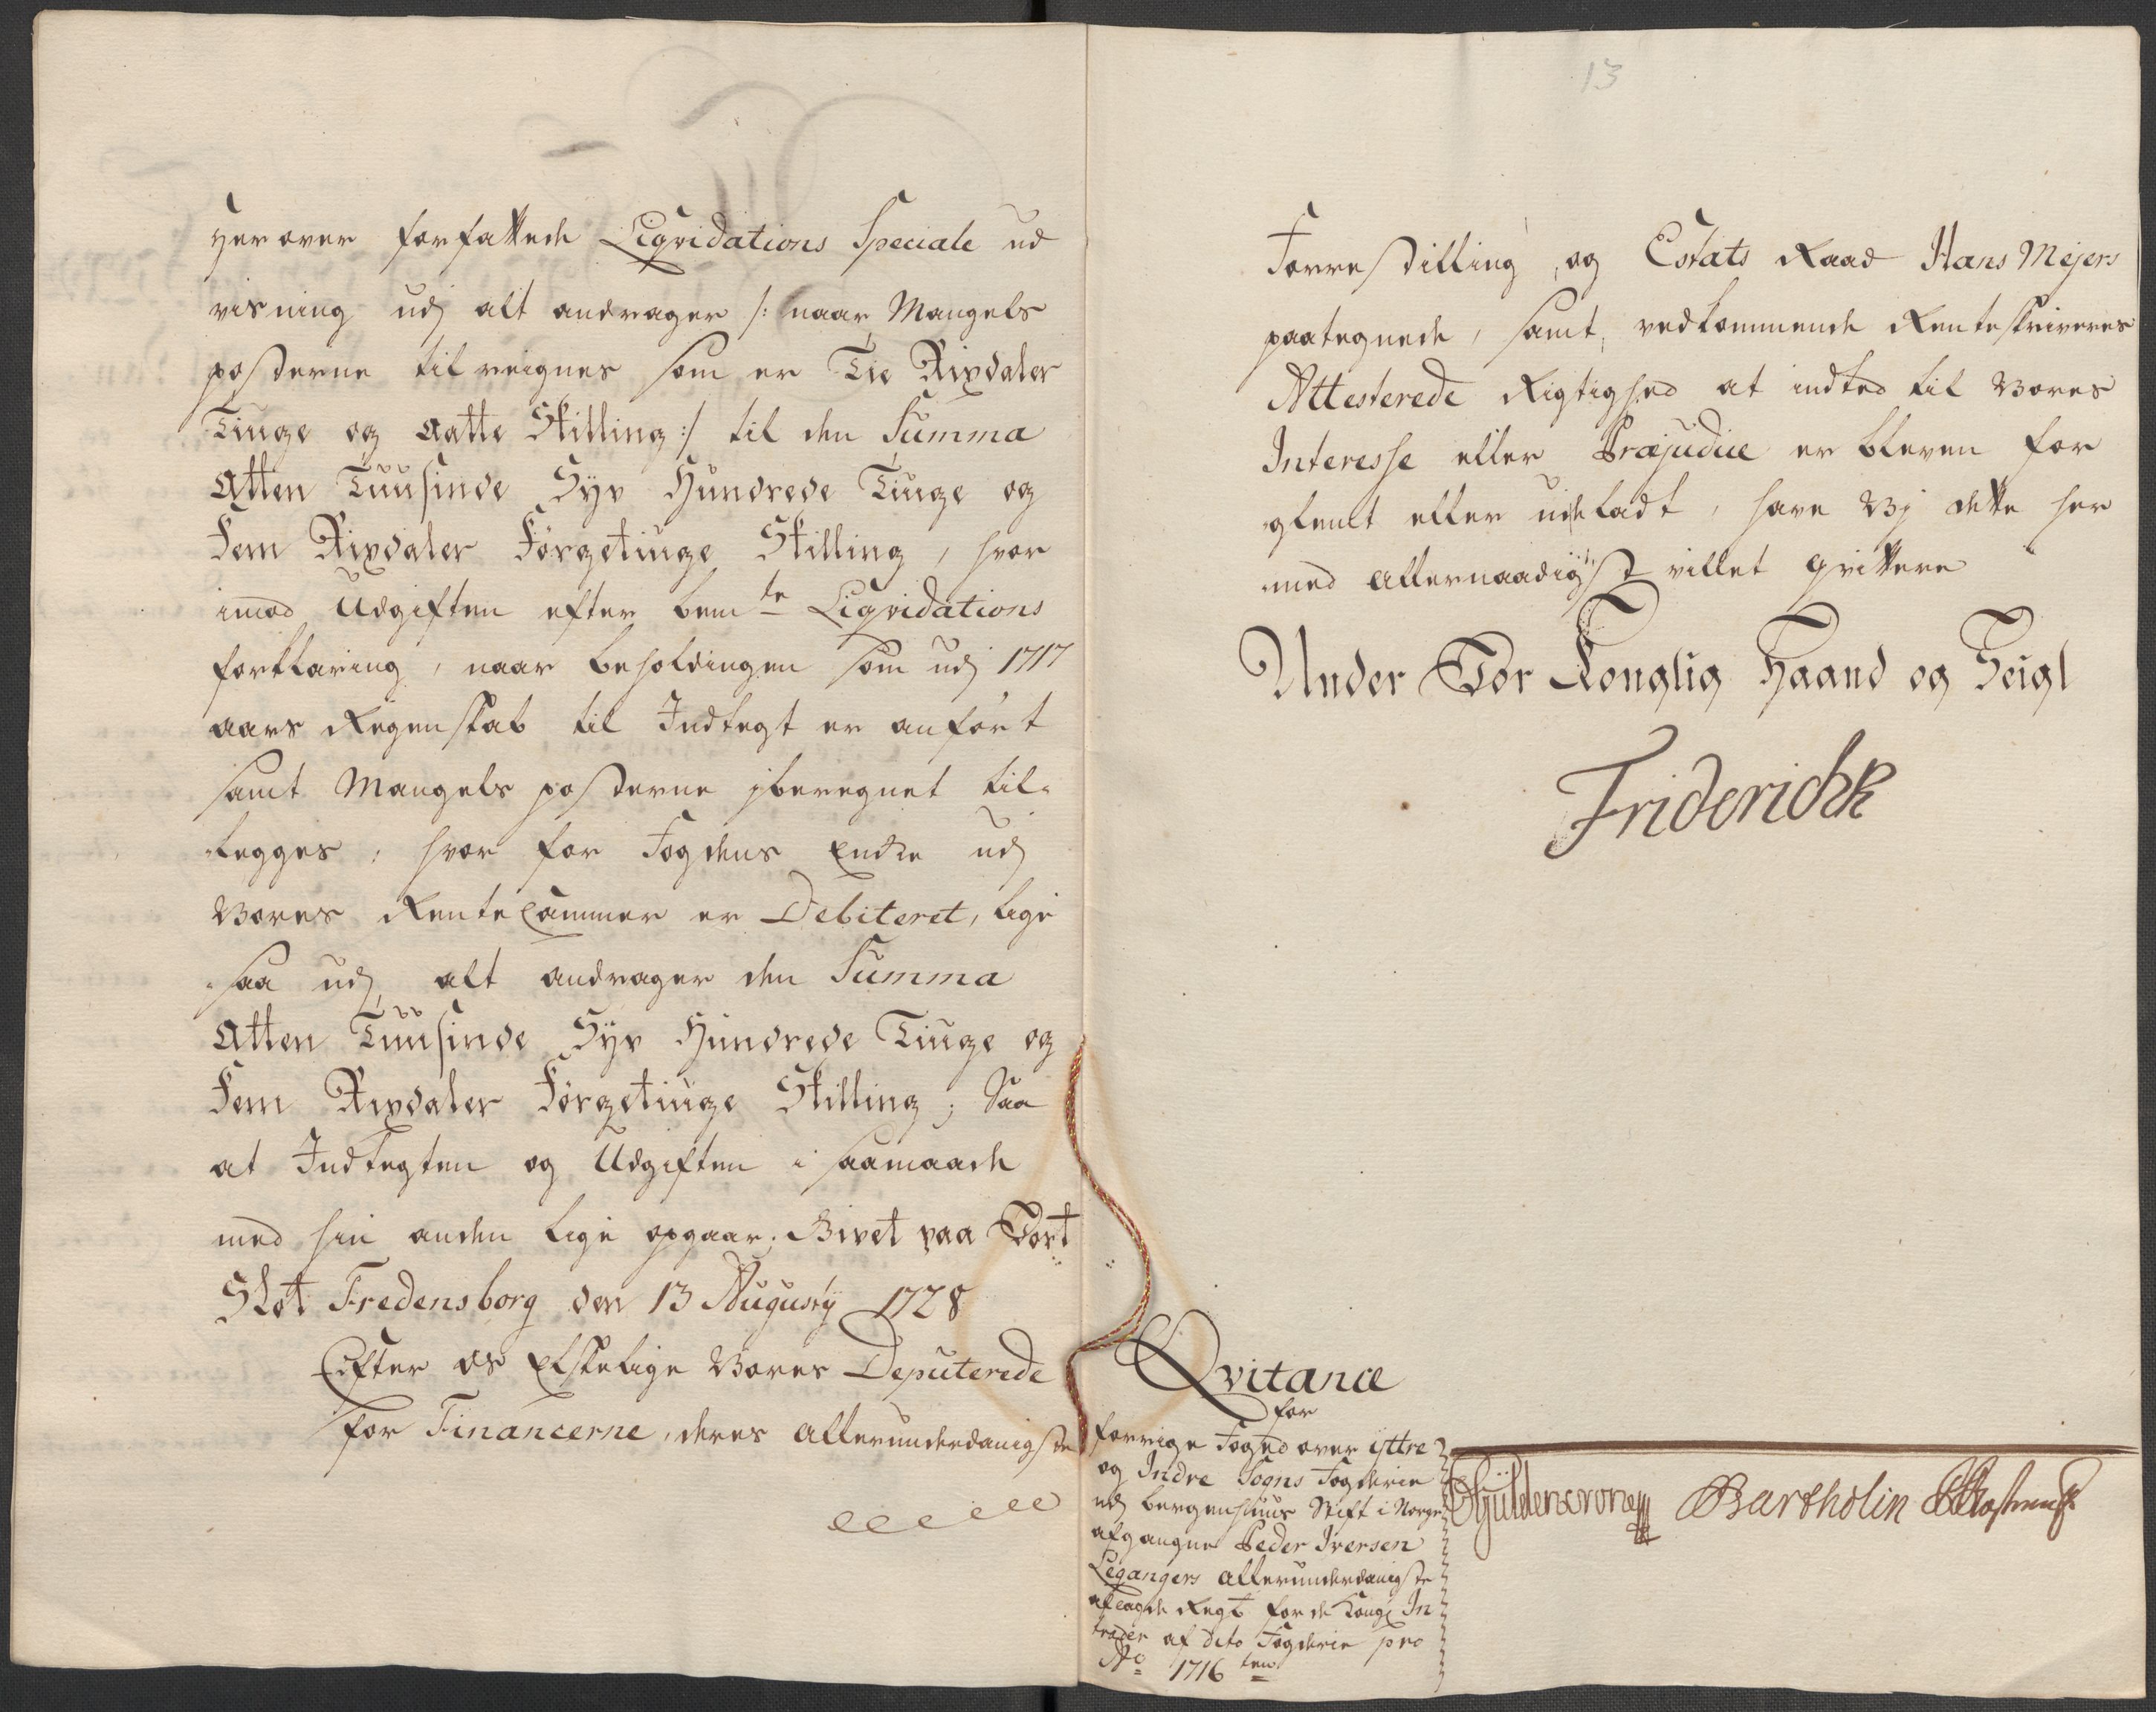 her over forfattede Liqvidations Speciale ud
visning udj alt andrager /: naar Mangels
posterne til reignes som er Tie Rixdaler
Tiuge og aatte Skilling :/ til den Summa
Atten Tuusinde Syv Hundrede Tiuge og
Fem Rixdaler Førgetiuge Skilling, hvor
imod Udgiften efter bemte Liqvidations
forklaring, naar beholdingen som udj 1717
aars Regenskab til Indtegt er anført
samt Mangels posterne jberegnet til-
legges, hvor for Fogdens udj
Vores RenteCammer er Debiteret, lige
saa udj alt andrager den Summa
Atten Tuusinde Syv Hundrede Tiuge og
Fem Rixdaler Førgetiuge Skilling; Saa
at Indtegten og Udgiften i saamaade
med hin anden lige opgaar; Givet paa Vort
Slot Fredensborg den 13 Augusty 1728
Efter os Elskelige Vores Deputerede
for Financerne, deres allerunderdanigste
13
Forrestilling, og Estats Raad Hans Mejers
paategnede, samt vedkommende Renteskriveres
Attesterede Rigtighed at indted til Vores
Interesse eller Præjudice er bleven for
glemt eller udeladt, have Vj dette her
med allernaadigst villet qvittere
Under Vor Konglig Haand og Seigl
Friderich R
Qvitance
for
forrige Foged over ijttre
og Indre Sogns Fogderie
udj bergenshuus Stift i Norge
afgangne Peder Iversen
Legangers allerunderdanigste
aflagde Regb for de Kongl In
trader af dito Fogderie pro
Ao 1716 ten
Güldencrone Bartholin